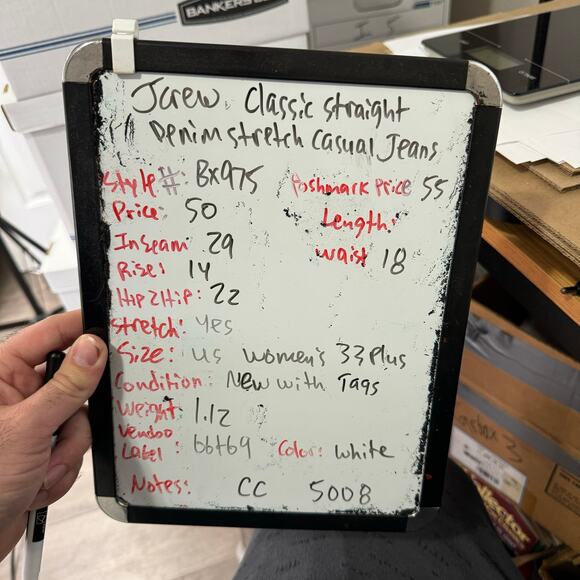 BANKERS
Jcrew Classic straight
Denim stretch Casual Jeans
Style #: BX975 Poshmark Price 55
Price: 50 Length:
Inseam 29 waist 18
Rise: 14
Hip 2 Hip: 22
stretch: yes
Size: US women's 33 Plus
Condition: New with Tags
Weight: 1.12
Vendoo
Label: 66+69 Color: white
Notes: CC 5008